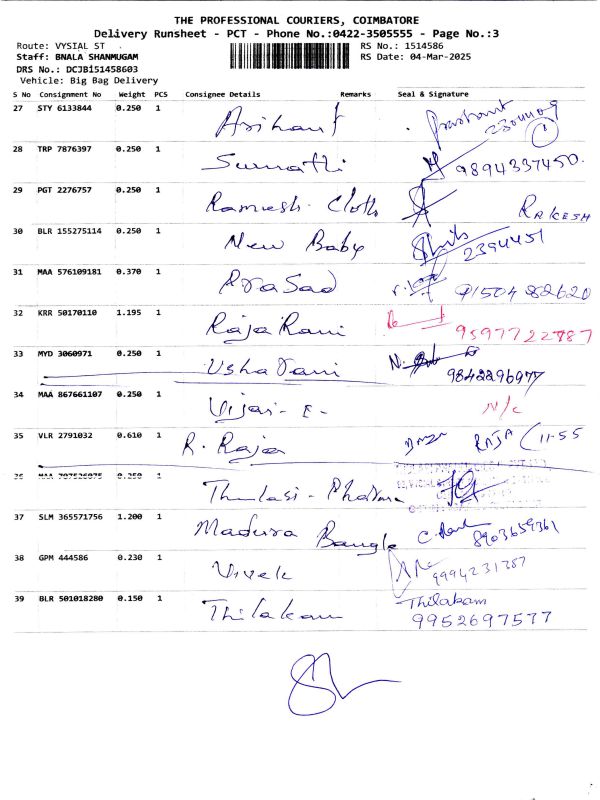 THE PROFESSIONAL COURIERS, COIMBATORE
Delivery Runsheet - PCT - Phone No.:0422-3505555 - Page No.:3
Route: VYSIAL ST RS No.: 1514586
Staff: BNALA SHANMUGAM RS Date: 04-Mar-2025
DRS No.: DCJB151458603
Vehicle: Big Bag Delivery
S No Consignment No Weight PCS Consignee Details Remarks Seal & Signature
27 STY 6133844 0.250 1 Arihant Prashant
28 TRP 7876397 0.250 1 Sumathi 9894337450
29 PGT 2276757 0.250 1 Ramesh Cloth RAKESH
30 BLR 155275114 0.250 1 New Baby 2394451
31 MAA 576109181 0.370 1 Prasad 9150482620
32 KRR 50170110 1.195 1 Raja Rani 9597722787
33 MYD 3060971 0.250 1 Usha Rani 9842296977
34 MAA 867661107 0.250 1 Vijai - E - N/C
35 VLR 2791032 0.610 1 R. Raja RAJA (11-55
36 MAA 707526075 0.250 1 Thulasi - Pharma
37 SLM 365571756 1.200 1 Madura Bangle 8903659361
38 GPM 444586 0.230 1 Vivek 9994231787
39 BLR 501018280 0.150 1 Thilakam Thilakam
9952697577